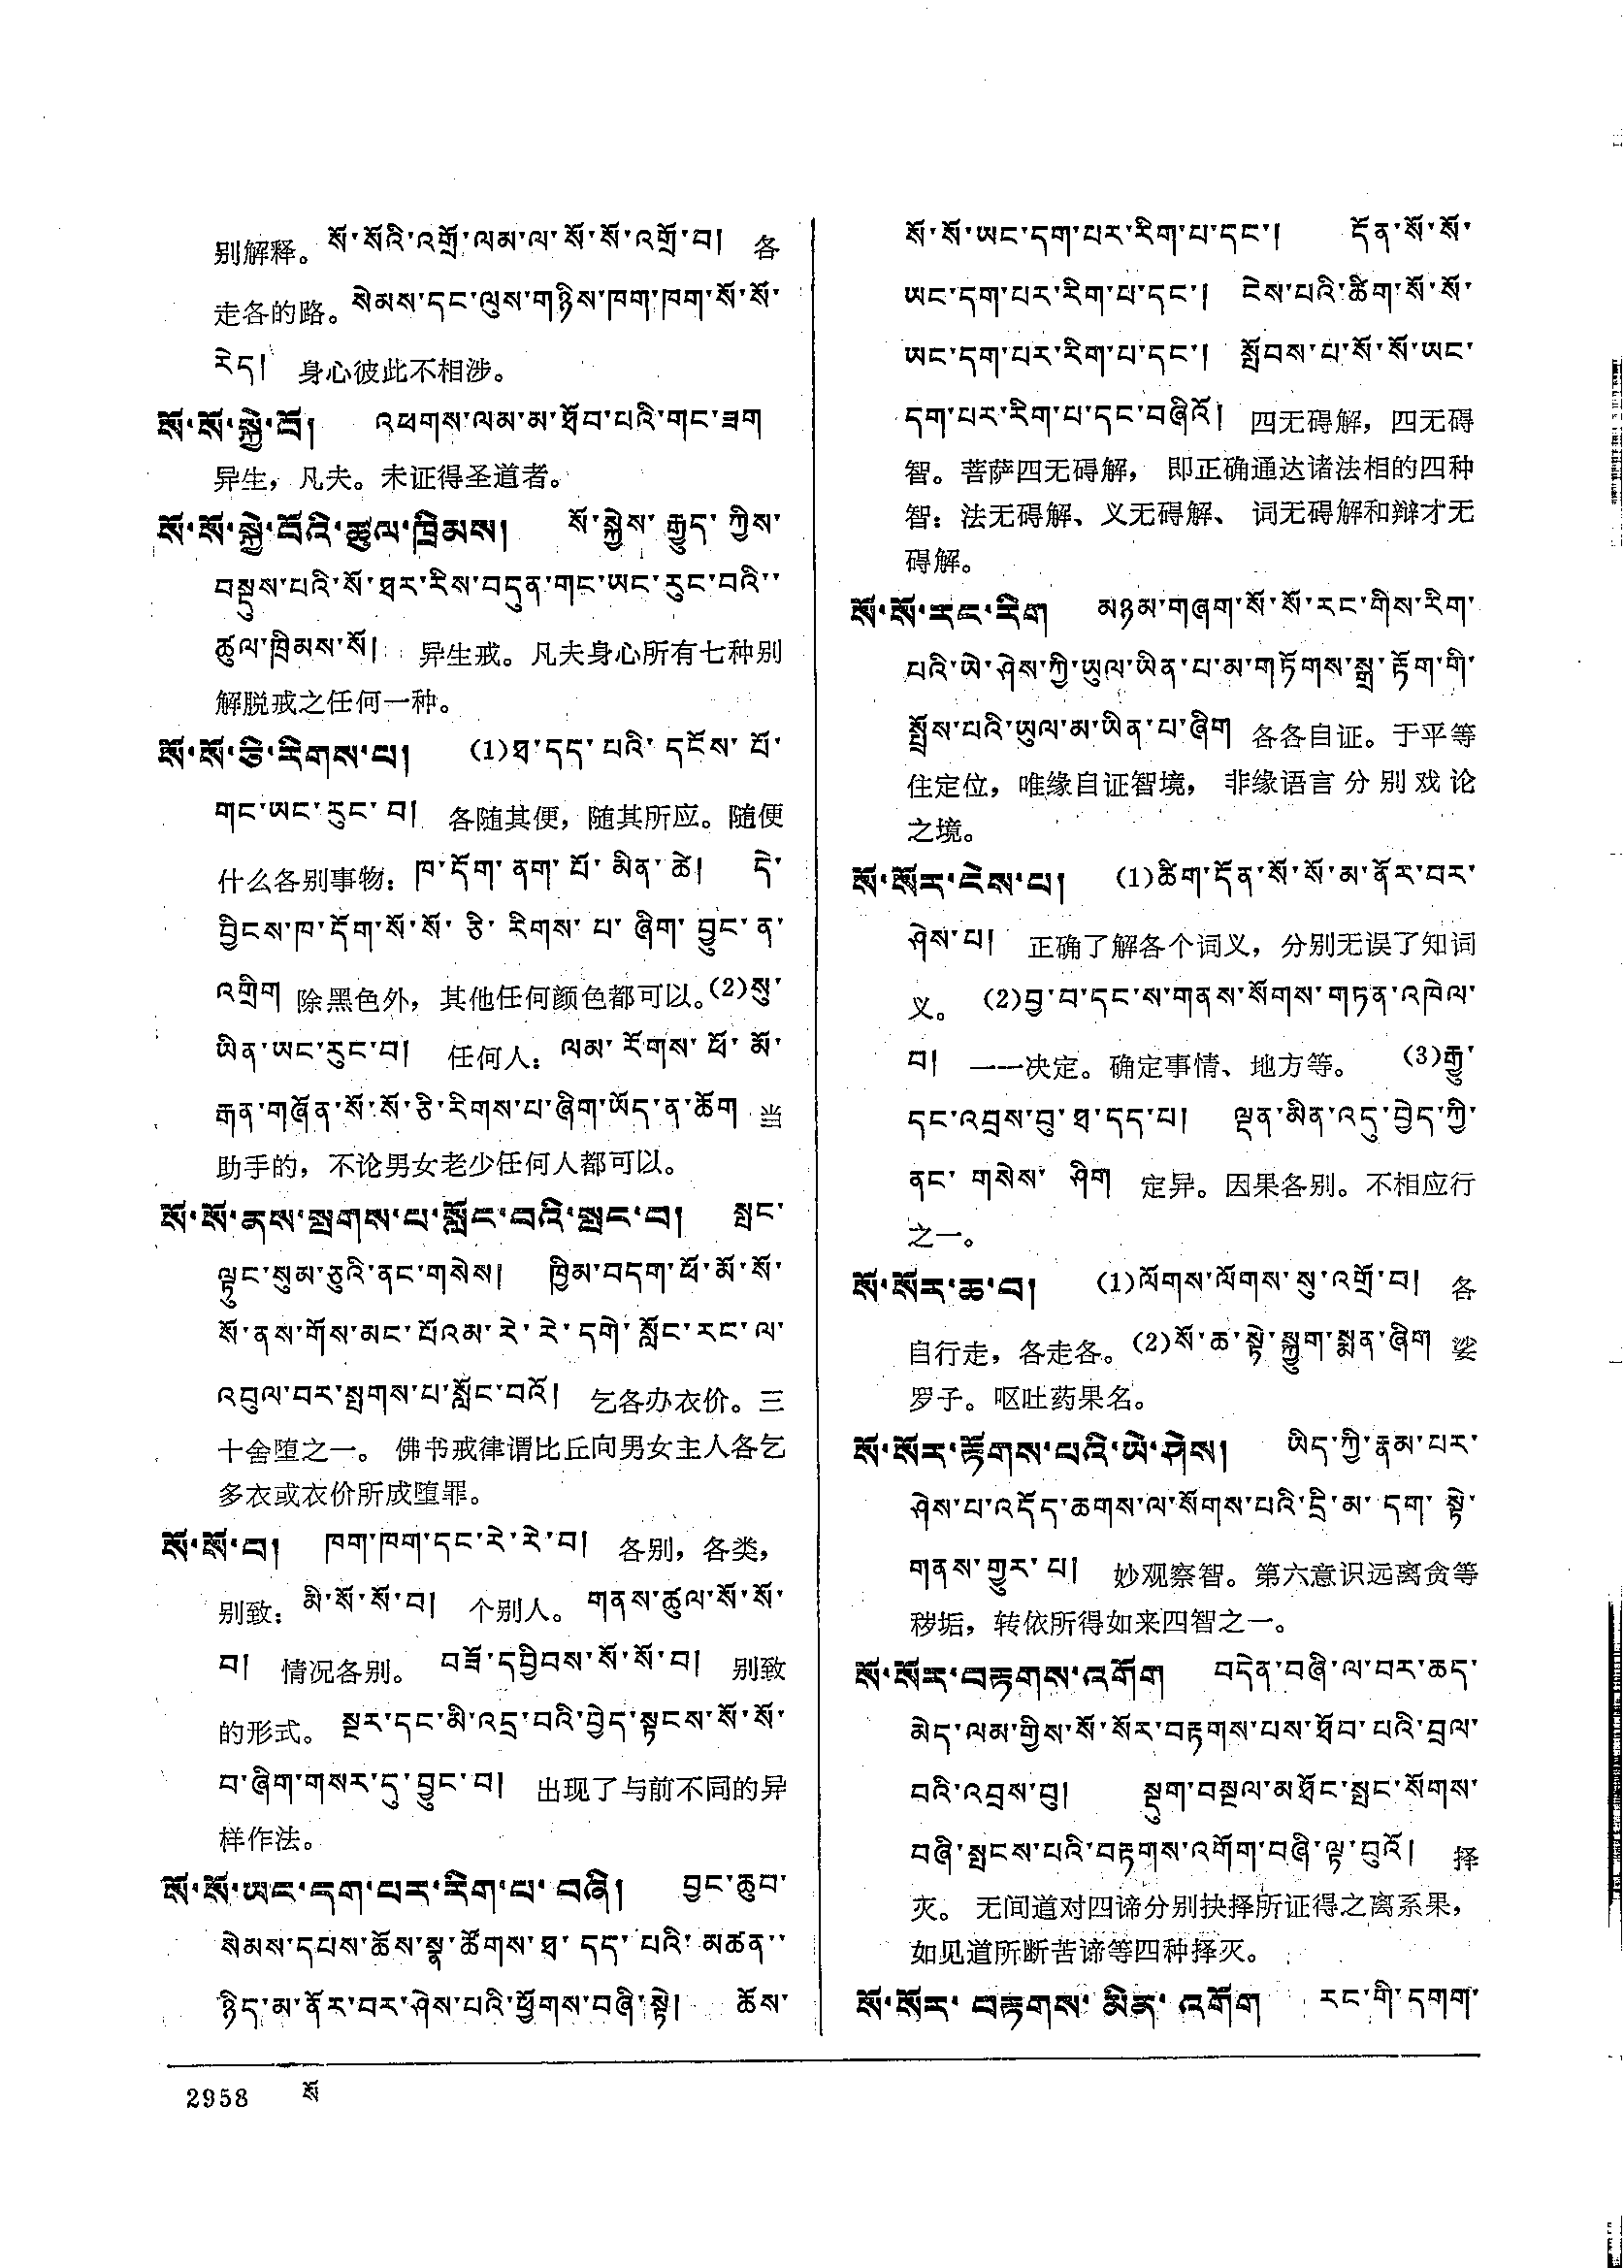 别解释。 སོ་སོའི་འགྲོ་ལམ་ལ་སོ་སོ་འགྲོ་བ། 各
走各的路。 སེམས་དང་ལུས་གཉིས་ཁག་ཁག་སོ་སོ་
རེད། 身心彼此不相涉。
སོ་སོ་སྐྱེ་བོ། འཕགས་ལམ་མ་ཐོབ་པའི་གང་ཟག
异生，凡夫。未证得圣道者。
སོ་སོ་སྐྱེ་བོའི་ཚུལ་ཁྲིམས། སོ་སྐྱེས་རྒྱུད་ཀྱིས་
བསྡུས་པའི་སོ་ཐར་རིས་བདུན་གང་ཡང་རུང་བའི་་
ཚུལ་ཁྲིམས་སོ། 异生戒。凡夫身心所有七种别
解脱戒之任何一种。
སོ་སོ་ཅི་རིགས་པ། (1)ཐ་དད་པའི་དངོས་པོ་
གང་ཡང་རུང་བ། 各随其便，随其所应。随便
什么各别事物： ཁ་དོག་ནག་པོ་མིན་ཚེ། དེ་
བྱིངས་ཁ་དོག་སོ་སོ་ཅི་རིགས་པ་ཞིག་བྱུང་ན་
འགྲིག 除黑色外，其他任何颜色都可以。(2)སུ་
ཡིན་ཡང་རུང་བ། 任何人： ལམ་རོགས་ཕོ་མོ་
རྒན་གཞོན་སོ་སོ་ཅི་རིགས་པ་ཞིག་ཡོད་ན་ཆོག 当
助手的，不论男女老少任何人都可以。
སོ་སོ་ནས་སྲགས་པ་སློང་བའི་སྤང་བ། སྤང་
ལྟུང་སུམ་ཅུའི་ནང་གསེས། ཁྱིམ་བདག་ཕོ་མོ་སོ་
སོ་ནས་གོས་མང་པོའམ་རེ་རེ་དགེ་སློང་རང་ལ་
འབུལ་བར་སྲགས་པ་སློང་བའོ། 乞各办衣价。三
十舍堕之一。 佛书戒律谓比丘向男女主人各乞
多衣或衣价所成堕罪。
སོ་སོ་བ། ཁག་ཁག་དང་རེ་རེ་བ། 各别，各类，
别致： མི་སོ་སོ་བ། 个别人。 གནས་ཚུལ་སོ་སོ་
བ། 情况各别。 བཟོ་དབྱིབས་སོ་སོ་བ། 别致
的形式。 སྔར་དང་མི་འདྲ་བའི་བྱེད་སྟངས་སོ་སོ་
བ་ཞིག་གསར་དུ་བྱུང་བ། 出现了与前不同的异
样作法。
སོ་སོ་ཡང་དག་པར་རིག་པ་བཞི། བྱང་ཆུབ་
སེམས་དཔས་ཆོས་སྣ་ཚོགས་ཐ་དད་པའི་མཚན་་
ཉིད་མ་ནོར་བར་ཤེས་པའི་ཕྱོགས་བཞི་སྟེ། ཆོས་
སོ་སོ་ཡང་དག་པར་རིག་པ་དང་། དོན་སོ་སོ་
ཡང་དག་པར་རིག་པ་དང་། ངེས་པའི་ཚིག་སོ་སོ་
ཡང་དག་པར་རིག་པ་དང་། སྤོབས་པ་སོ་སོ་ཡང་
དག་པར་རིག་པ་དང་བཞིའོ། 四无碍解，四无碍
智。菩萨四无碍解， 即正确通达诸法相的四种
智：法无碍解、义无碍解、 词无碍解和辩才无
碍解。
སོ་སོ་རང་རིག མཉམ་གཞག་སོ་སོ་རང་གིས་རིག་
པའི་ཡེ་ཤེས་ཀྱི་ཡུལ་ཡིན་པ་མ་གཏོགས་སྒྲ་རྟོག་གི་
སྤྲོས་པའི་ཡུལ་མ་ཡིན་པ་ཞིག 各各自证。于平等
住定位，唯缘自证智境， 非缘语言分别戏论
之境。
སོ་སོར་ངེས་པ། (1)ཚིག་དོན་སོ་སོ་མ་ནོར་བར་
ཤེས་པ། 正确了解各个词义，分别无误了知词
义。 (2)བྱ་བ་དང་ས་གནས་སོགས་གཏན་འཁེལ་
བ། 一一决定。确定事情、地方等。 (3)རྒྱུ་
དང་འབྲས་བུ་ཐ་དད་པ། ལྡན་མིན་འདུ་བྱེད་ཀྱི་
ནང་གསེས་ཤིག 定异。因果各别。不相应行
之一。
སོ་སོར་ཆ་བ། (1)ལོགས་ལོགས་སུ་འགྲོ་བ། 各
自行走，各走各。(2)སོ་ཆ་སྟེ་སྐྱུག་སྨན་ཞིག 娑
罗子。呕吐药果名。
སོ་སོར་རྟོགས་པའི་ཡེ་ཤེས། ཡིད་ཀྱི་རྣམ་པར་
ཤེས་པ་འདོད་ཆགས་ལ་སོགས་པའི་དྲི་མ་དག་སྟེ་
གནས་གྱུར་པ། 妙观察智。第六意识远离贪等
秽垢，转依所得如来四智之一。
སོ་སོར་བརྟགས་འགོག བདེན་བཞི་ལ་བར་ཆད་
མེད་ལམ་གྱིས་སོ་སོར་བརྟགས་པས་ཐོབ་པའི་བྲལ་
བའི་འབྲས་བུ། སྡུག་བསྔལ་མཐོང་སྤང་སོགས་
བཞི་སྤངས་པའི་བརྟགས་འགོག་བཞི་ལྟ་བུའོ། 择
灭。 无间道对四谛分别抉择所证得之离系果，
如见道所断苦谛等四种择灭。
སོ་སོར་བརྟགས་མིན་འགོག རང་གི་དགག་
2958 སོ